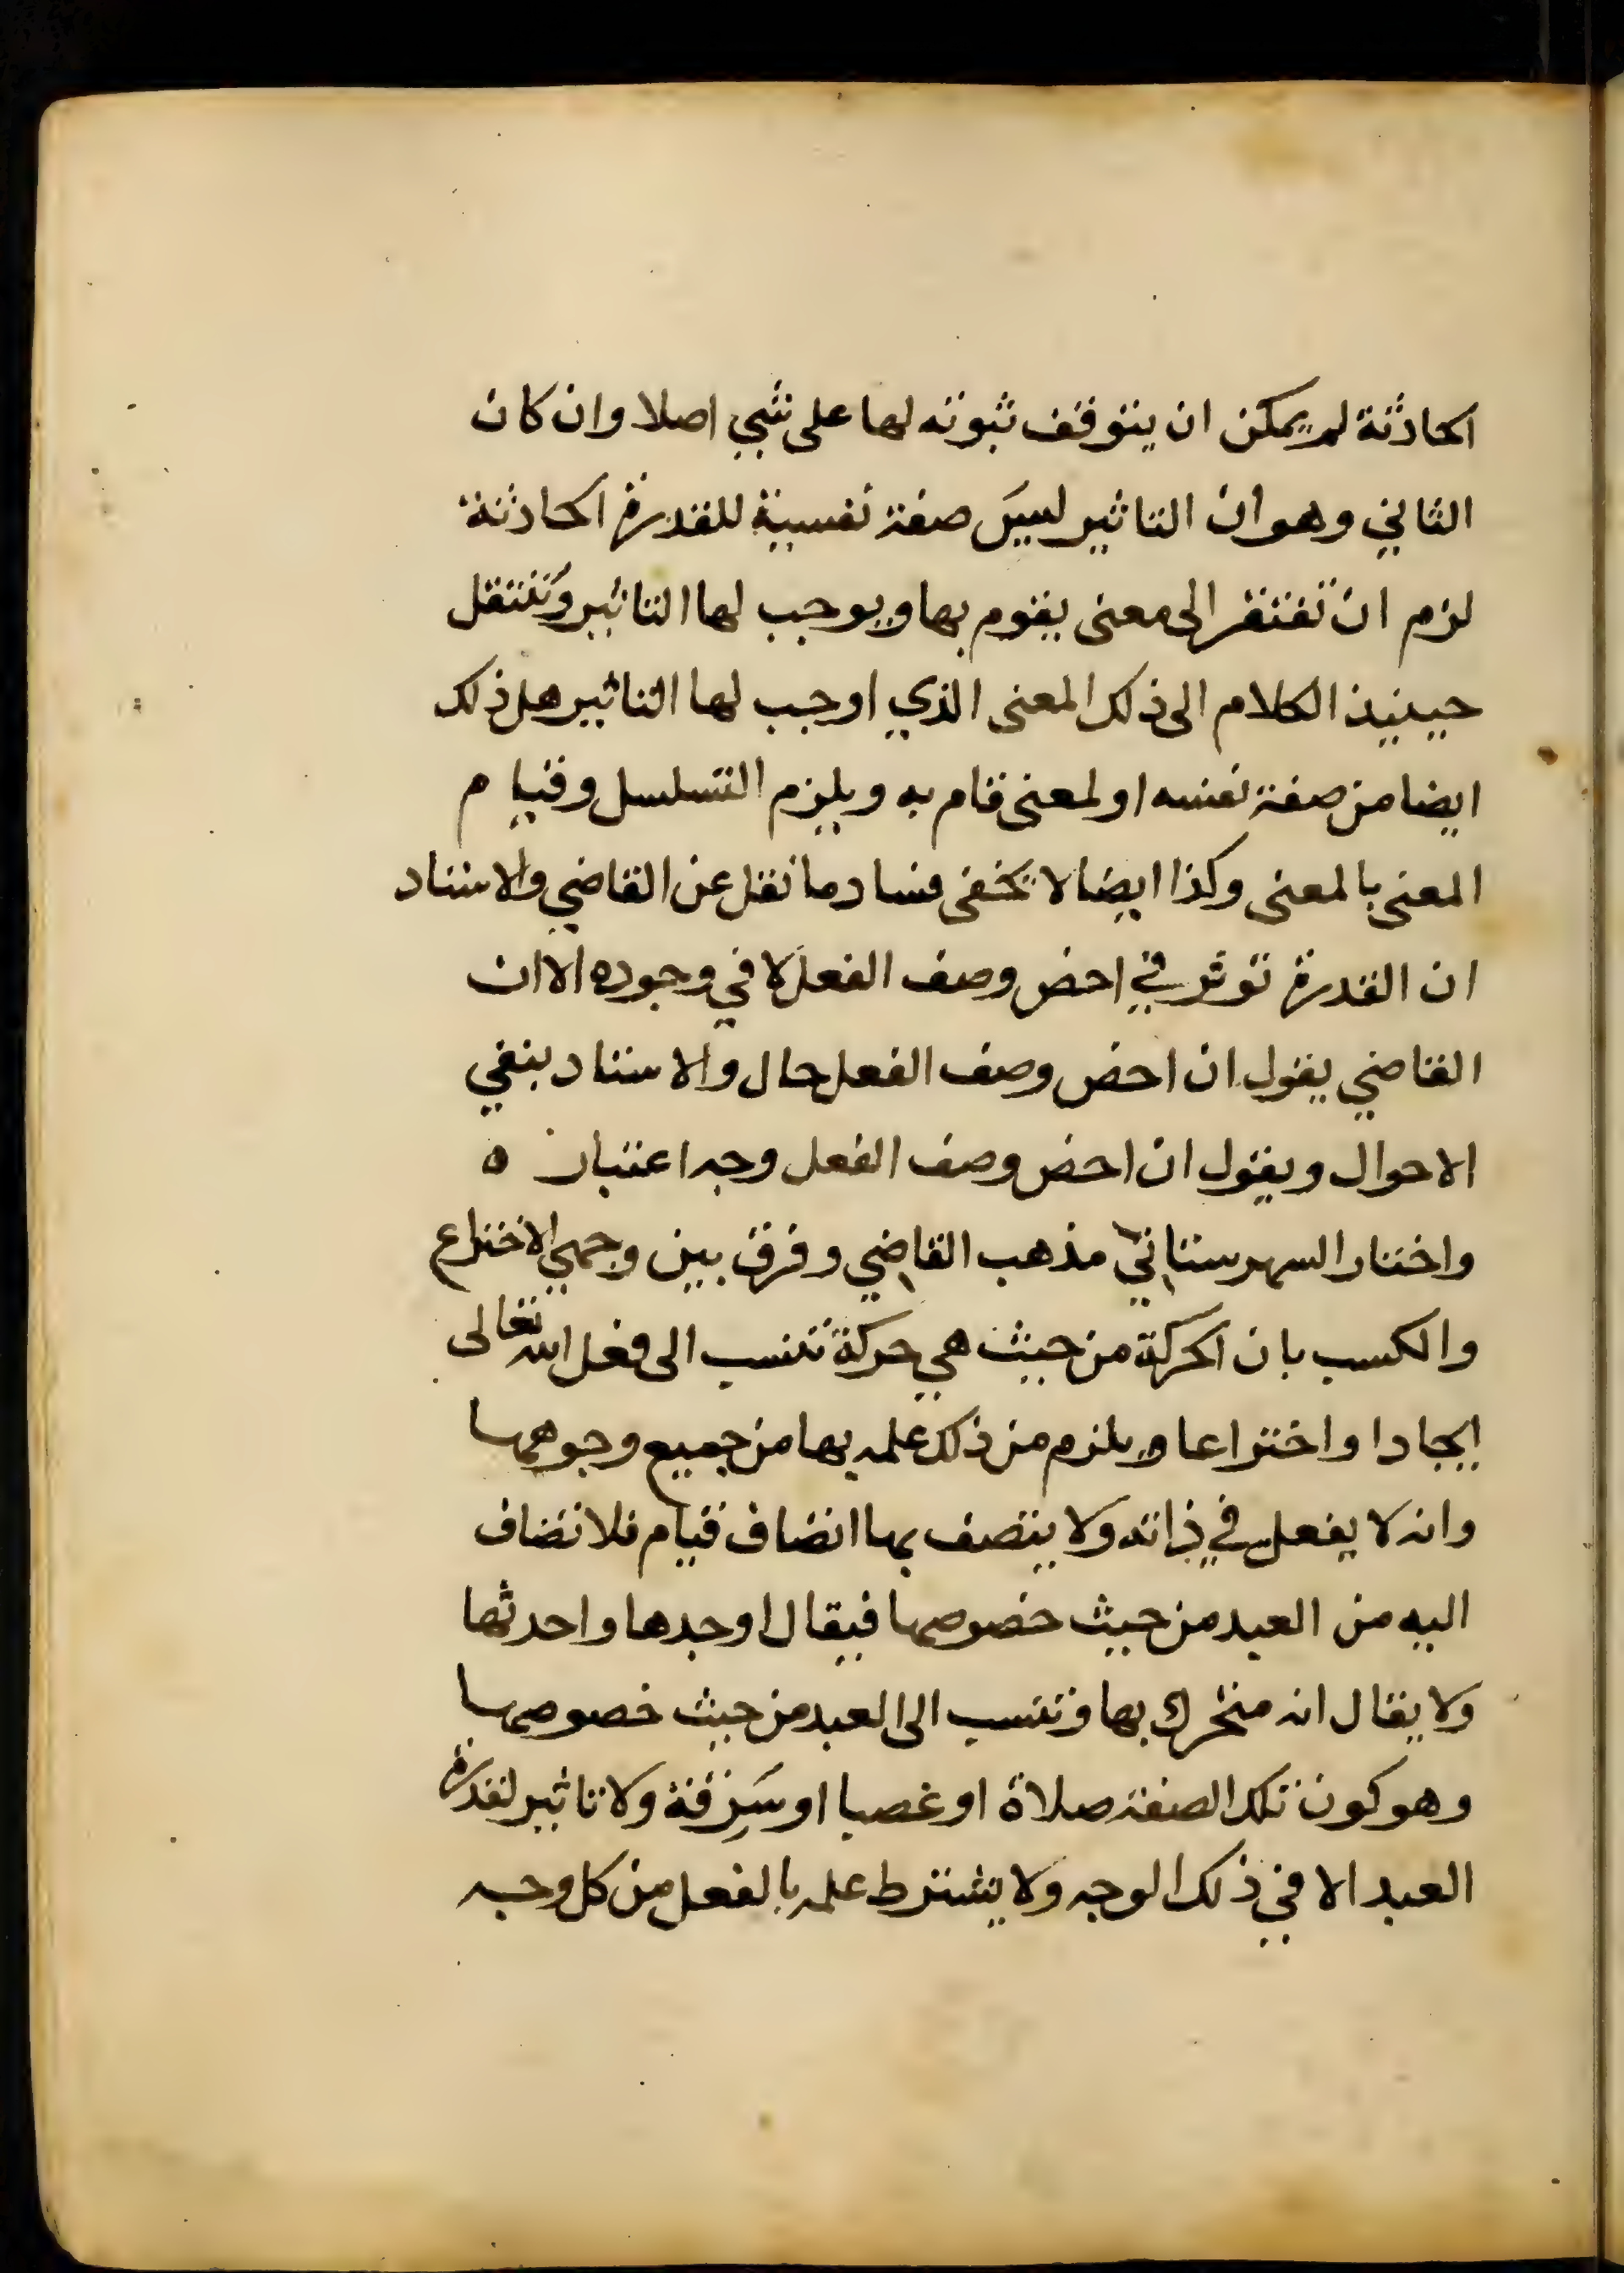 الحادثة لم يمكن ان يتوقف ثبوته لها على شي اصلا وان كان
الثاني وهو ان التاثير ليسَ صفة نفسية للقدرة الحادثة
لزم ان تفتقر الى معنى يقوم بها ويوجب لها التاثير وَتنتقل
حينيذ الكلام الى ذلك المعنى الذي اوجب لها التاثير هل ذلك
ايضا من صفة نفسه او لمعنى قام به ويلزم التسلسل وقيام
المعنى بالمعنى وكذا ايضا لا تخفى فساد ما نقل عن القاضي والاستاد
ان القدرة توثر في اخص وصف الفعل لا في وجوده الا ان
القاضي يقول ان اخص وصف الفعل حال والاستاد ينفي
الاحوال ويقول ان اخص وصف الفعل وجه اعتبار ه
واختار السهرستاني مذهب القاضي وفرق بين وجهي الاختراع
والكسب بان الحركة من حيث هي حركة تنسب الى فعل الله تعالى
ايجادا واختراعا ويلزم من ذلك علمه بها من جميع وجوهها
وانه لا يفعل في ذاته ولا يتصف بها اتصاف قيام فلا تضاف
اليه من العبد من حيث خصوصها فيقال اوجدها واحدثها
ولا يقال انه متحرك بها وتنسب الى العبد من حيث خصوصها
وهو كون تلك الصفة صلاة او غصبا او سَرِقة ولا تاثير لقدرة
العبد الا في ذلك الوجه ولا يشترط علمه بالفعل من كل وجه